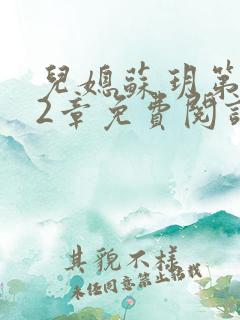 兒媳蘇玥第
2章免費閱讀
其貌不樣
未经同意禁止搭找